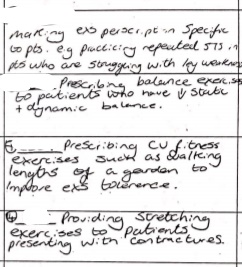 making exs perscription specific
to pts. e.g practicing repeated STS in
pts who are struggling with leg weakness
Prescribing balance exercises
to patients who have ↓ static
+ dynamic balance.
5 Prescribing CV fitness
exercises such as walking
lengths of a garden to
improve exs tolerence.
6 Providing stretching
exercises to patients
presenting with contractures.